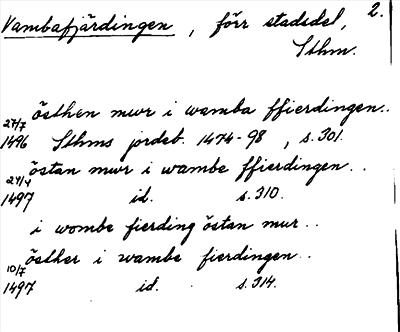 Vambafjärdingen, förr stadsdel, 2.
Sthm.
östhen mwr i wamba ffierdingen..
27/7
1496 Sthms jordeb. 1474-98, s. 301.
östan mur i wambe ffierdingen..
24/4
1497 id. s. 310.
i wombe fierding östan mur..
östher i wambe fierdingen..
10/7
1497 id. s. 314.